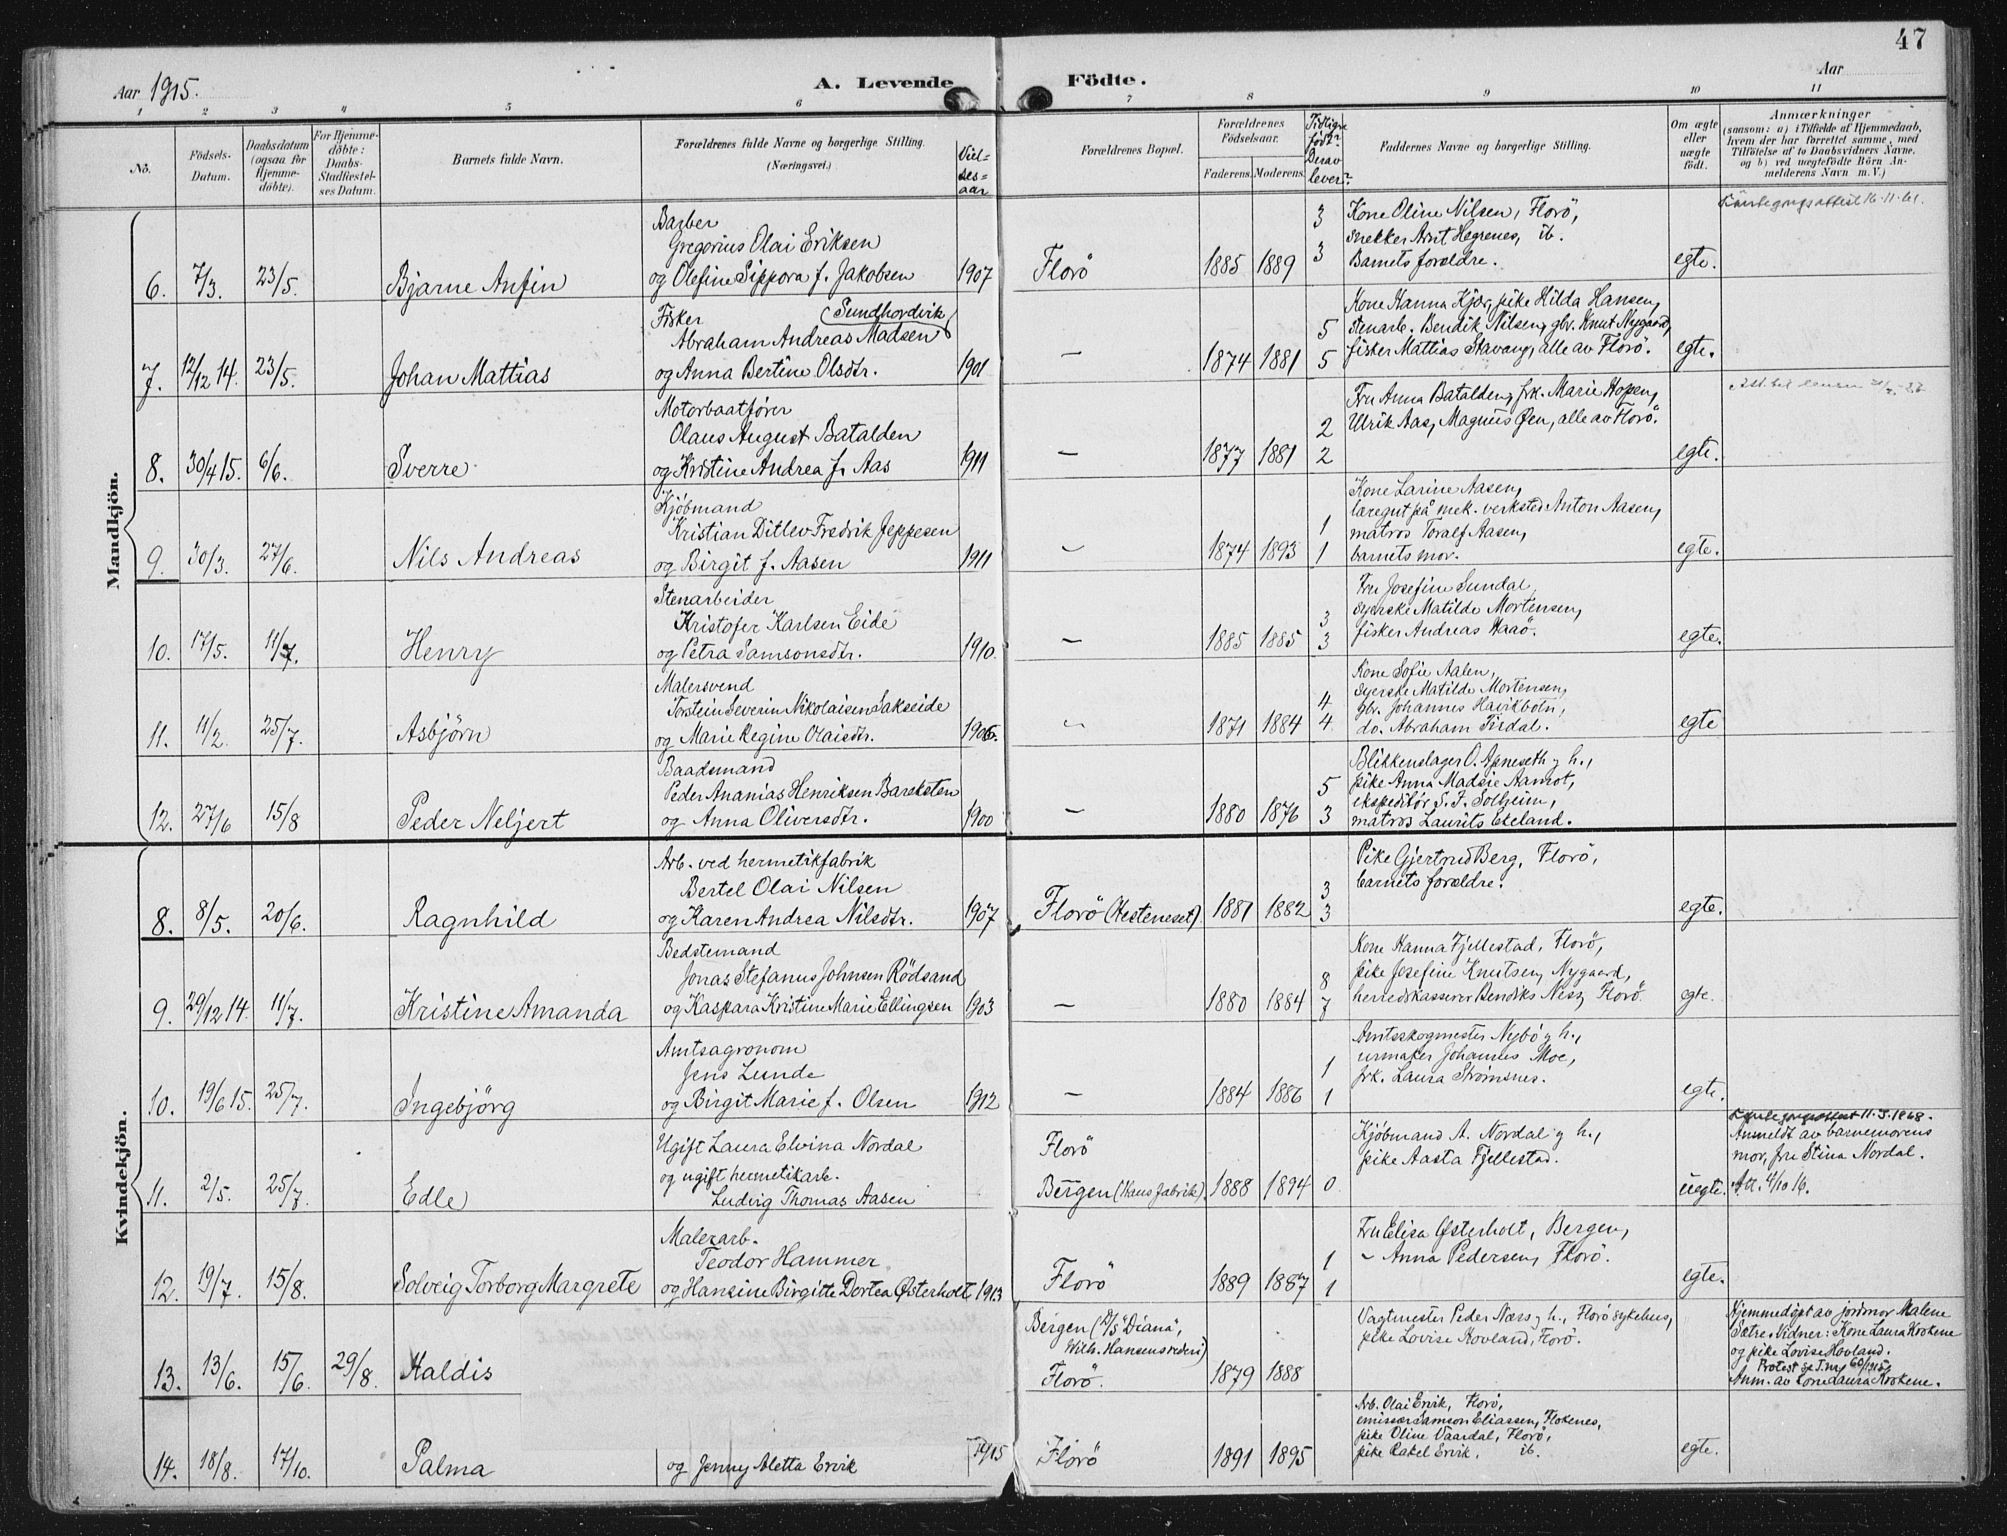 47
Aar 1915.
A. Levende
Födte.
Aar
1 2 3 4 5 6 7 8 9 10 11
No.
Födsels-
Datum.
Daabsdatum
(ogsaa for
Hjemme-
döbte).
For Hjemme-
döbte:
Daabs-
Stadfæstel-
ses Datum.
Barnets fulde Navn.
Forældrenes fulde Navne og borgerlige Stilling.
(Næringsvei.)
Viel-
ses=
aar
Forældrenes Bopæl.
Forældrenes
Födselsaar.
Faderens. Moderens.
Tidligre
födt?
Derav
lever?
Faddernes Navne og borgerlige Stilling.
Om ægte
eller
uægte
födt.
Anmærkninger
(saasom: a) i Tilfælde af Hjemmedaab,
hvem der har forrettet samme, med
Tilföielse af to Daabsvidners Navne.
og b) ved uegtefödte Börn An-
melderens Navn m. V.)
Mandkjön.
6. 7/3. 23/5. Bjarne Anfin
Barber
Gregorius Olai Eriksen
og Olefine Sippora f. Jakobsen 1907
Florö 1885 1889 3 3
Kone Oline Nilsen, Florö,
snekker Arnt Hegrenes, ib.
Barnets forældre.
egte.
16-11-61.
7. 12/12 14. 23/5. Johan Mattias
Fisker (Sundhordvik)
Abraham Andreas Madsen
og Anna Bertine Olsdtr. 1901
— 1874 1881 5 5
Kone Hanna Kjær, pike Hilda Hansen,
stenarb. Bendik Nilsen, gbr. Knut Nygaard,
fisker Mattias Stavang, alle av Florö.
egte.
8. 30/4 15. 6/6. Sverre
Motorbaatfører
Olaus August Batalden
og Kristine Andrea f. Aas 1911
— 1877 1881 2 2
Fru Anna Batalden, frk. Marie Hopen,
Ulrik Aas, Magnus Øen, alle av Florö.
egte.
9. 30/3. 27/6. Nils Andreas
Kjöbmand
Kristian Ditlev Fredrik Jeppesen
og Birgit f. Aasen 1911
— 1874 1893 1 1
Kone Larine Aasen,
læregut på mek. verksted Anton Aasen,
matros Toralf Aasen,
barnets mor.
egte.
10. 17/5. 11/7. Henry
Stenarbeider
Kristofer Karlsen Eide
og Petra Samsonsdtr. 1910.
— 1885 1885 3 3
Fru Josefine Sundal,
syerske Matilde Mortensen,
fisker Andreas Haaö.
egte.
11. 11/2. 25/7. Asbjörn
Malersvend
Torstein Severin Nikolaisen Sakseide
og Marie Regine Olaisdtr. 1906.
— 1871 1884 4 4.
Kone Sofie Aalen,
syerske Matilde Mortensen,
gbr. Johannes Havikbotn,
do. Abraham Tindal.
egte
12. 27/6 15/8 Peder Neljert
Baadsmand
Peder Ananias Henriksen Bareksten
og Anna Oliversdtr. 1900
— 1880 1876 5 3
Blikkenslager O. Apneseth og h.,
pike Anna Madsie Aamot,
ekspeditör S. F. Solheim,
matros Laurits Ekeland.
Kvindekjön.
8. 8/5. 20/6. Ragnhild
Arb. ved hermetikfabrik
Bertel Olai Nilsen
og Karen Andrea Nilsdtr. 1907
Florö (Hesteneset). 1881 1882 3 3
Pike Gjertrud Berg, Florö,
barnets forældre.
egte.
9. 29/12 14. 11/7. Kristine Amanda
Bedstemand
Jonas Stefanus Johnsen Rödsand
og Kaspara Kristine Marie Ellingsen 1903
— 1880 1884 8 7
Kone Hanna Fjellestad, Florö,
pike Josefine Knutsen, Nygaard,
herredskasserer Bendiks Ness, Florö.
egte.
10. 19/6 15. 25/7. Ingebjörg
Amtsagronom
Jens Lunde
og Birgit Marie f. Olsen 1912
— 1884 1886 1 1
Amtsskogmester Nybö og h.,
urmaker Johannes Moe,
frk. Laura Strömsnes.
egte.
11. 2/5. 25/7. Edle
Ugift Laura Elvina Nordal
og ugift hermetikarb.
Ludvig Thomas Aasen
Florö
Bergen (Hans fabrik). 1888 1894 0
Kjöbmand A. Nordal og h.,
pike Aasta Fjellestad.
uegte.
11.3.1868.
Anmeldt av barnemorens
mor, fru Stina Nordal.
Att. 4/10 16.
12. 19/7. 15/8. Solveig Torborg Margrete
Malerarb.
Teodor Hammer
og Hansine Birgitte Dortea Østerholt 1913
Florö 1889 1887 1 1
Fru Elisa Østerholt, Bergen,
~ Anna Pedersen, Florö.
egte.
13. 13/6. 15/6. 29/8. Haldis
Bergen (D/S "Diana",
Wilh. Hansens rederi)
Florö. 1879 1888
Vagtmester Peder Næss og h., Florö sykehus,
pike Lovise Hovland, Florö.
Hjemmedöpt av jordmor Malene
Sætre. Vidner: Kone Laura Krokene
og pike Lovise Hovland.
Protest se J.nr. 60/1915
Anm. av kone Laura Krokene.
14. 18/8. 17/10. Palma
og Jenny Aletta Ervik 14/15
Florö 1891 1895
Arb. Olai Ervik, Florö,
emissær Samson Eliassen, Flokenes,
pike Oline Vaardal, Florö,
pike Rakel Ervik, ib.
egte.